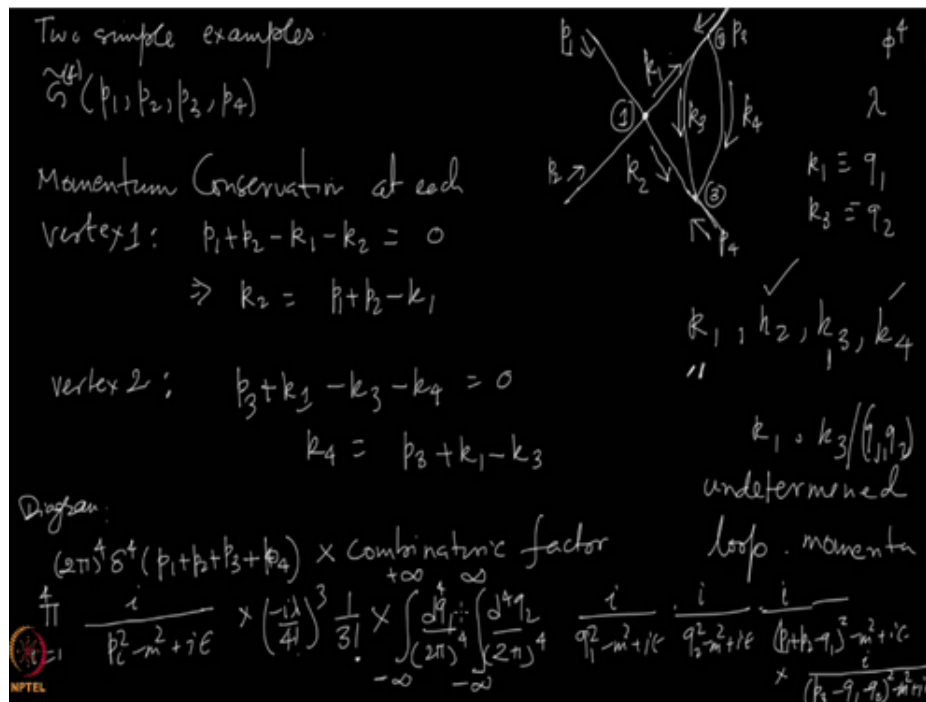 Two simple examples.
G̃⁽⁴⁾(p₁, p₂, p₃, p₄)
Momentum Conservation at each
vertex 1: p₁+p₂-k₁-k₂ = 0
⇒ k₂ = p₁+p₂-k₁
vertex 2: p₃+k₁-k₃-k₄ = 0
k₄ = p₃+k₁-k₃
Diagram:
(2π)⁴ δ⁴(p₁+p₂+p₃+p₄) × combinatoric factor
⁴π i=1 i/(pᵢ²-m²+iε) × (-iλ/4!)³ 1/3! × ∫_{-∞}^{+∞} d⁴q₁/(2π)⁴ ∫_{-∞}^{∞} d⁴q₂/(2π)⁴ i/(q₁²-m²+iε) i/(q₂²-m²+iε) i/((p₁+p₂-q₁)²-m²+iε)
× i/((p₃-q₁-q₂)²-m²+iε)
p₁ p₂ p₃ p₄
k₁ k₂ k₃ k₄
① ② ③
φ⁴
λ
k₁ ≡ q₁
k₃ ≡ q₂
k₁, k₂, k₃, k₄
k₁, k₃/(q₁,q₂)
undetermened
loop momenta
NPTEL